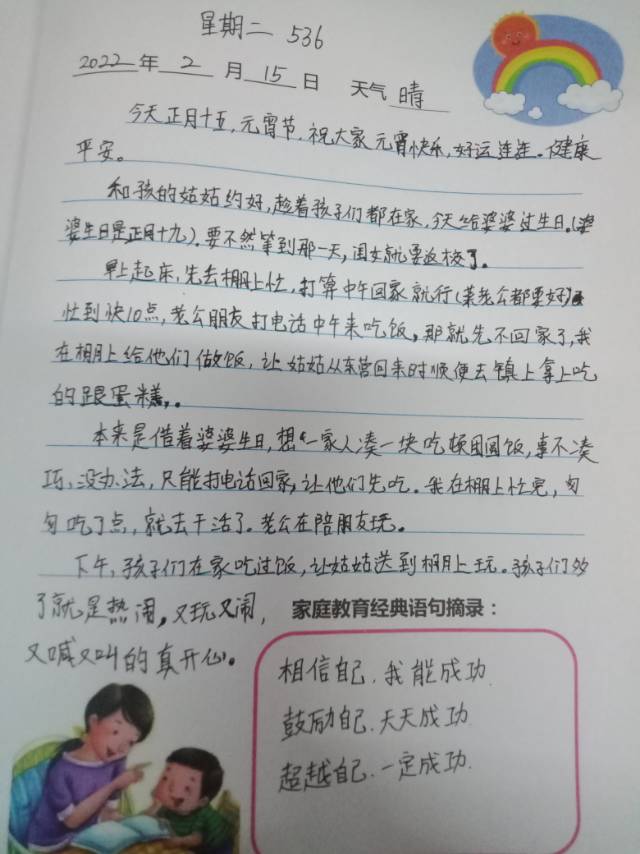 星期二 536
2022年 2 月 15 日 天气 晴
今天正月十五,元宵节,祝大家元宵快乐,好运连连。健康
平安。
和孩的姑姑约好,趁着孩子们都在家,今天给婆婆过生日。(婆
婆生日是正月十九)。要不然等到那一天,闺女就要返校了。
早上起床,先去棚上忙,打算中午回家就行(菜老公都要好)
忙到快10点,老公朋友打电话中午来吃饭。那就先不回家了,我
在棚上给他们做饭,让姑姑从东营回来时顺便去镇上拿上吃
的跟蛋糕,。
本来是借着婆婆生日,想一家人凑一块吃顿团圆饭,事不凑
巧、没办法,只能打电话回家,让他们先吃。我在棚上忙完,匆
匆吃了点,就去干活了。老公在陪朋友玩。
下午,孩子们在家吃过饭,让姑姑送到棚上玩。孩子们多
了就是热闹,又玩又闹,
又喊又叫的真开心。
家庭教育经典语句摘录:
相信自己.我能成功.
鼓励自己.天天成功.
超越自己.一定成功.